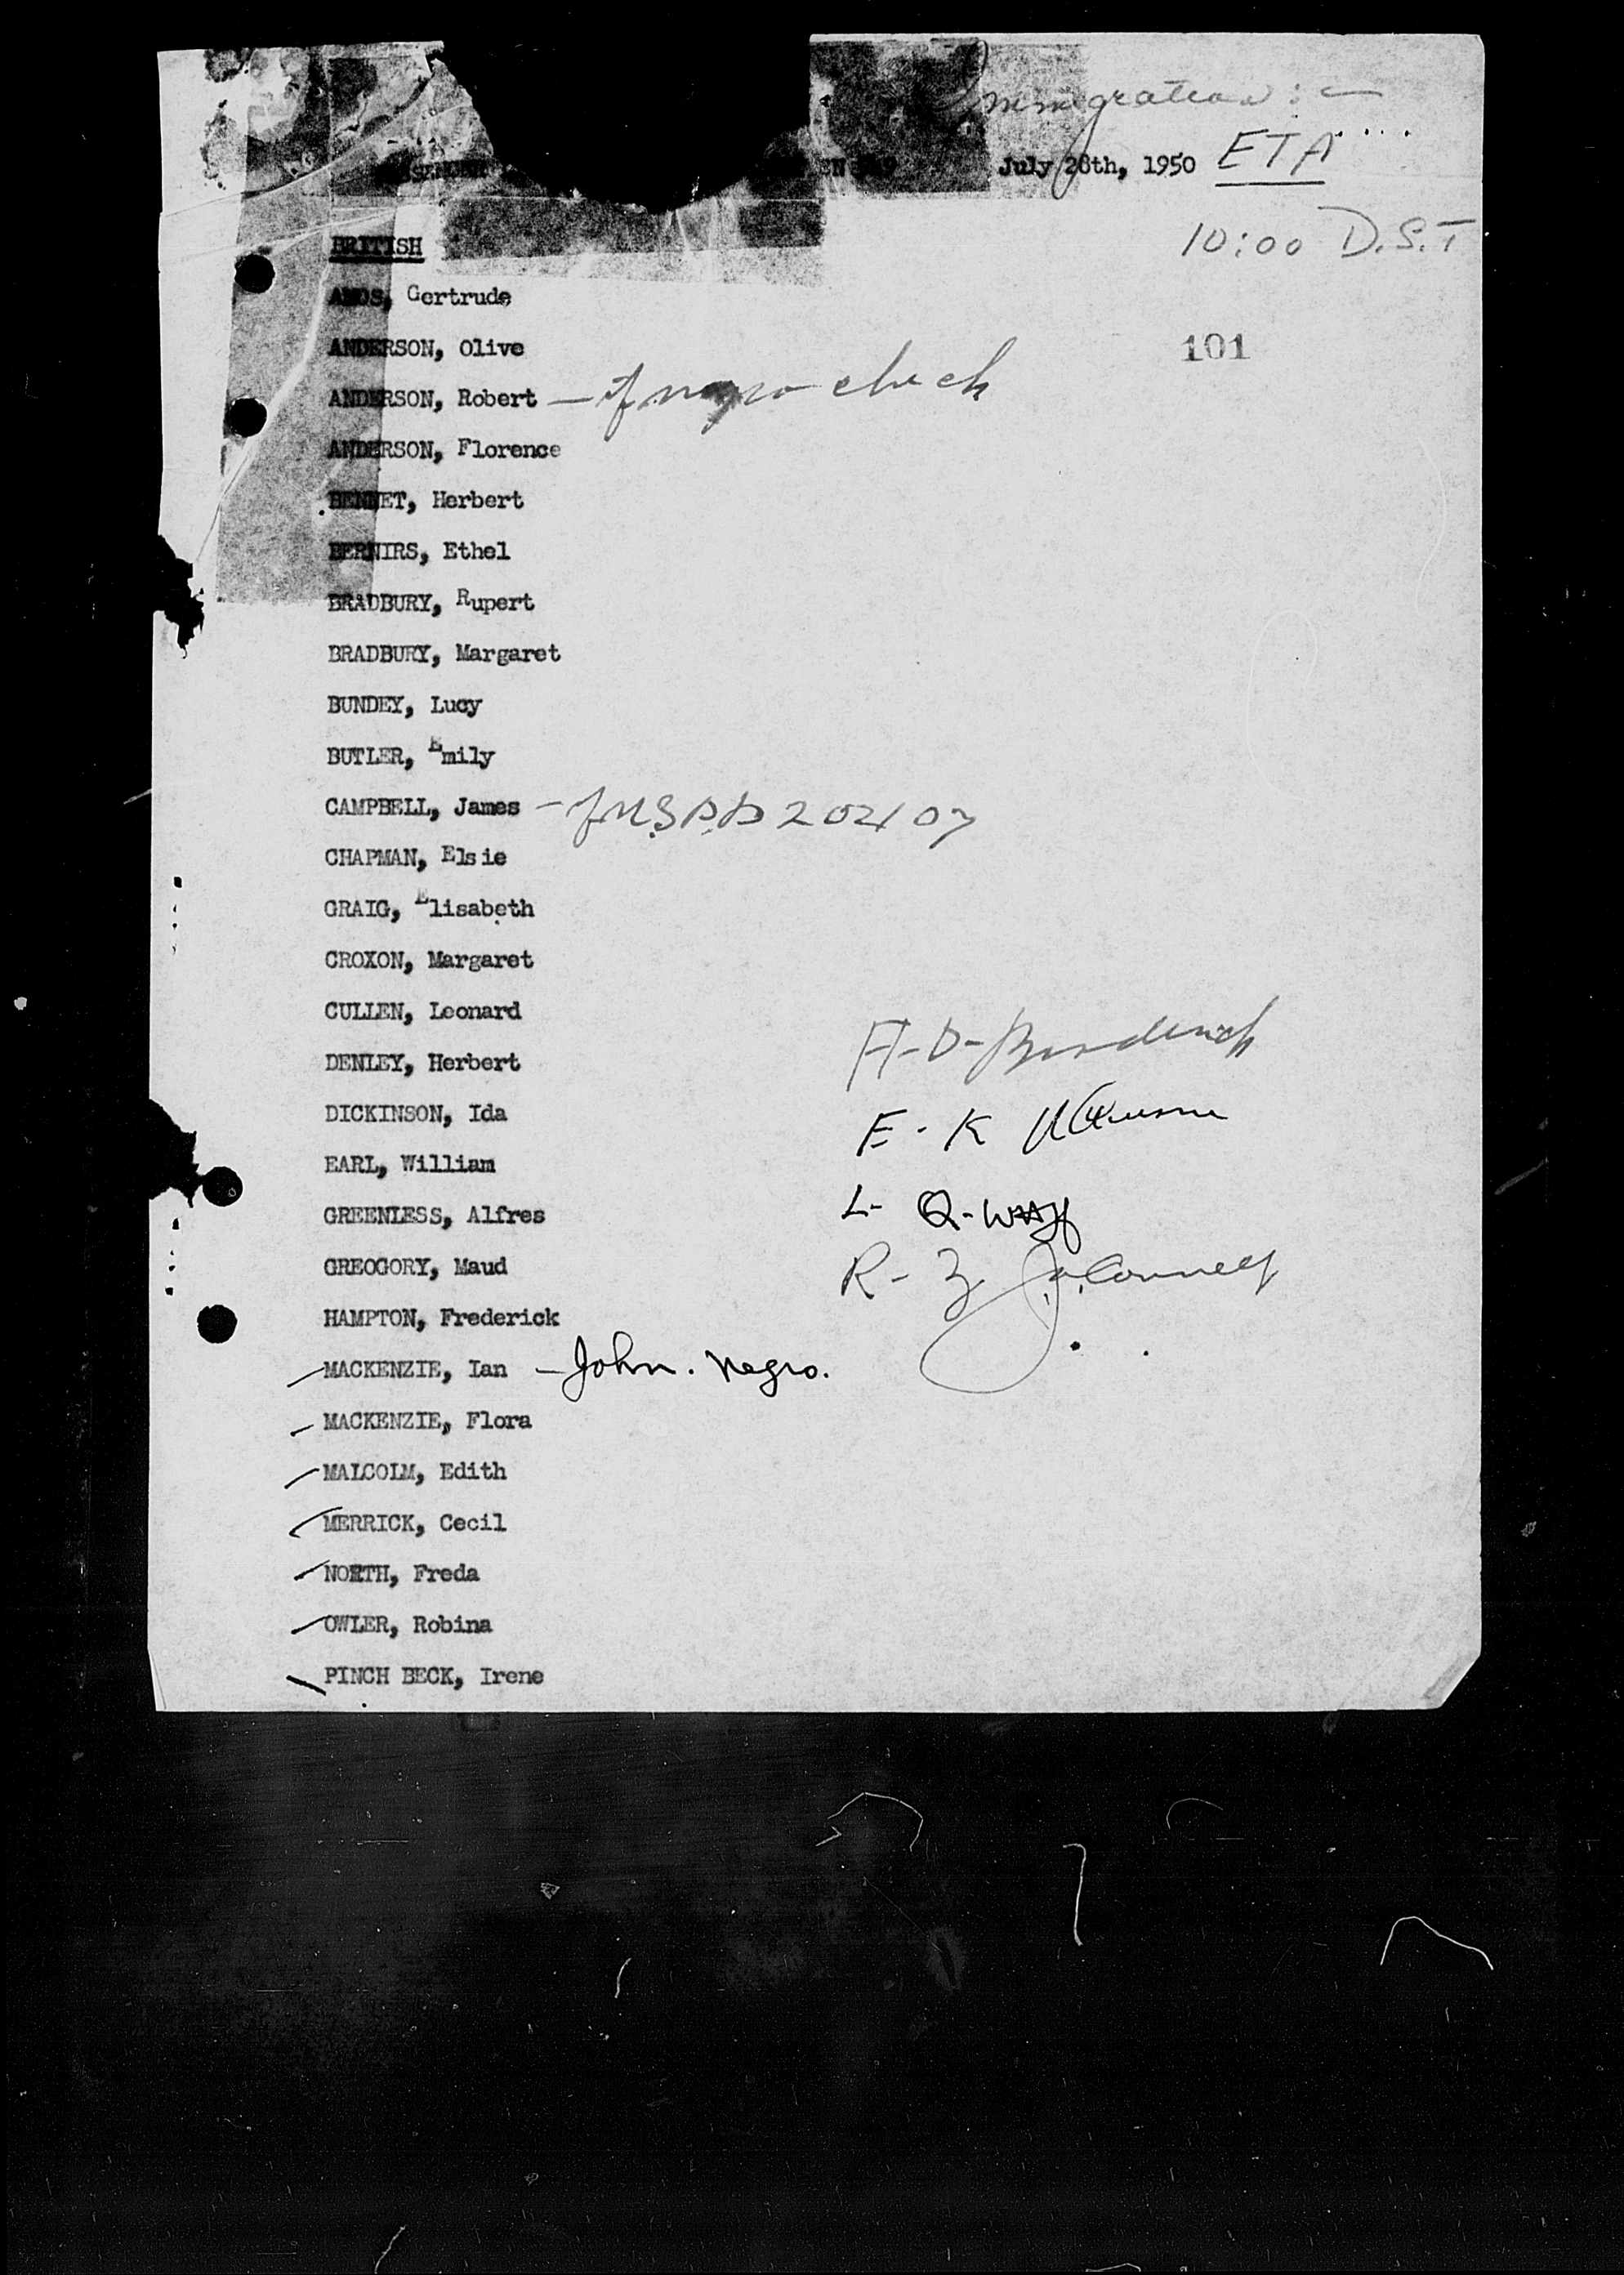 Immigration: —
July 28th, 1950 ETA
BRITISH
10:00 D.S.T
AMOS, Gertrude
ANDERSON, Olive
101
ANDERSON, Robert — if negro check
ANDERSON, Florence
BENNET, Herbert
BERNIRS, Ethel
BRADBURY, Rupert
BRADBURY, Margaret
BUNDEY, Lucy
BUTLER, Emily
CAMPBELL, James –
CHAPMAN, Elsie
GRAIG, Elisabeth
CROXON, Margaret
CULLEN, Leonard
H-D-
DENLEY, Herbert
DICKINSON, Ida
E - K
EARL, William
GREENLESS, Alfres
L- Q-
GREOGORY, Maud
R - Z
HAMPTON, Frederick
MACKENZIE, Ian – John. Negro.
MACKENZIE, Flora
MALCOLM, Edith
MERRICK, Cecil
NORTH, Freda
OWLER, Robina
PINCH BECK, Irene